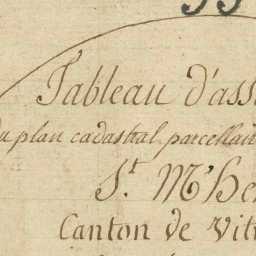 Tableau d'ass
du plan cadastral parcellair
St. M'He
Canton de Vit